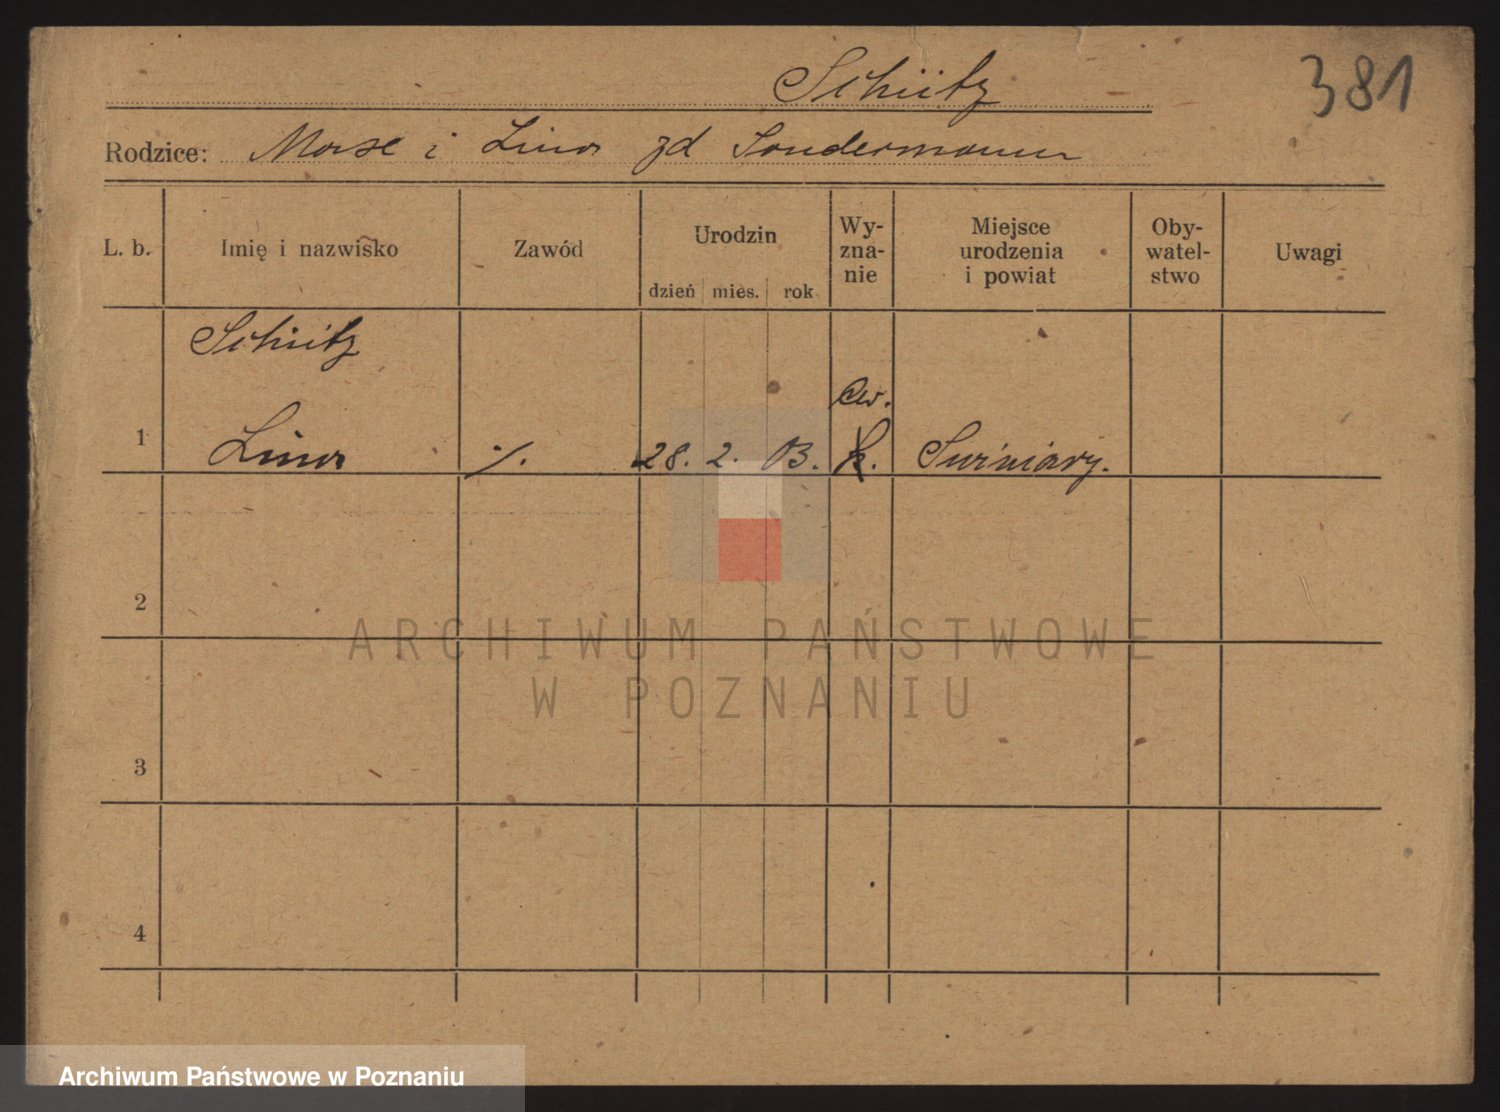 Schütz
381
Rodzice: Max i Lina zd Sondermann
L. b.
Imię i nazwisko
Zawód
Urodzin
dzień mies. rok
Wy-
zna-
nie
Miejsce
urodzenia
i powiat
Oby-
watel-
stwo
Uwagi
Schütz
ew.
1 Lina ·/. 28. 2. 03. k. Świniary.
2
ARCHIWUM PAŃSTWOWE
W POZNANIU
3
4
Archiwum Państwowe w Poznaniu